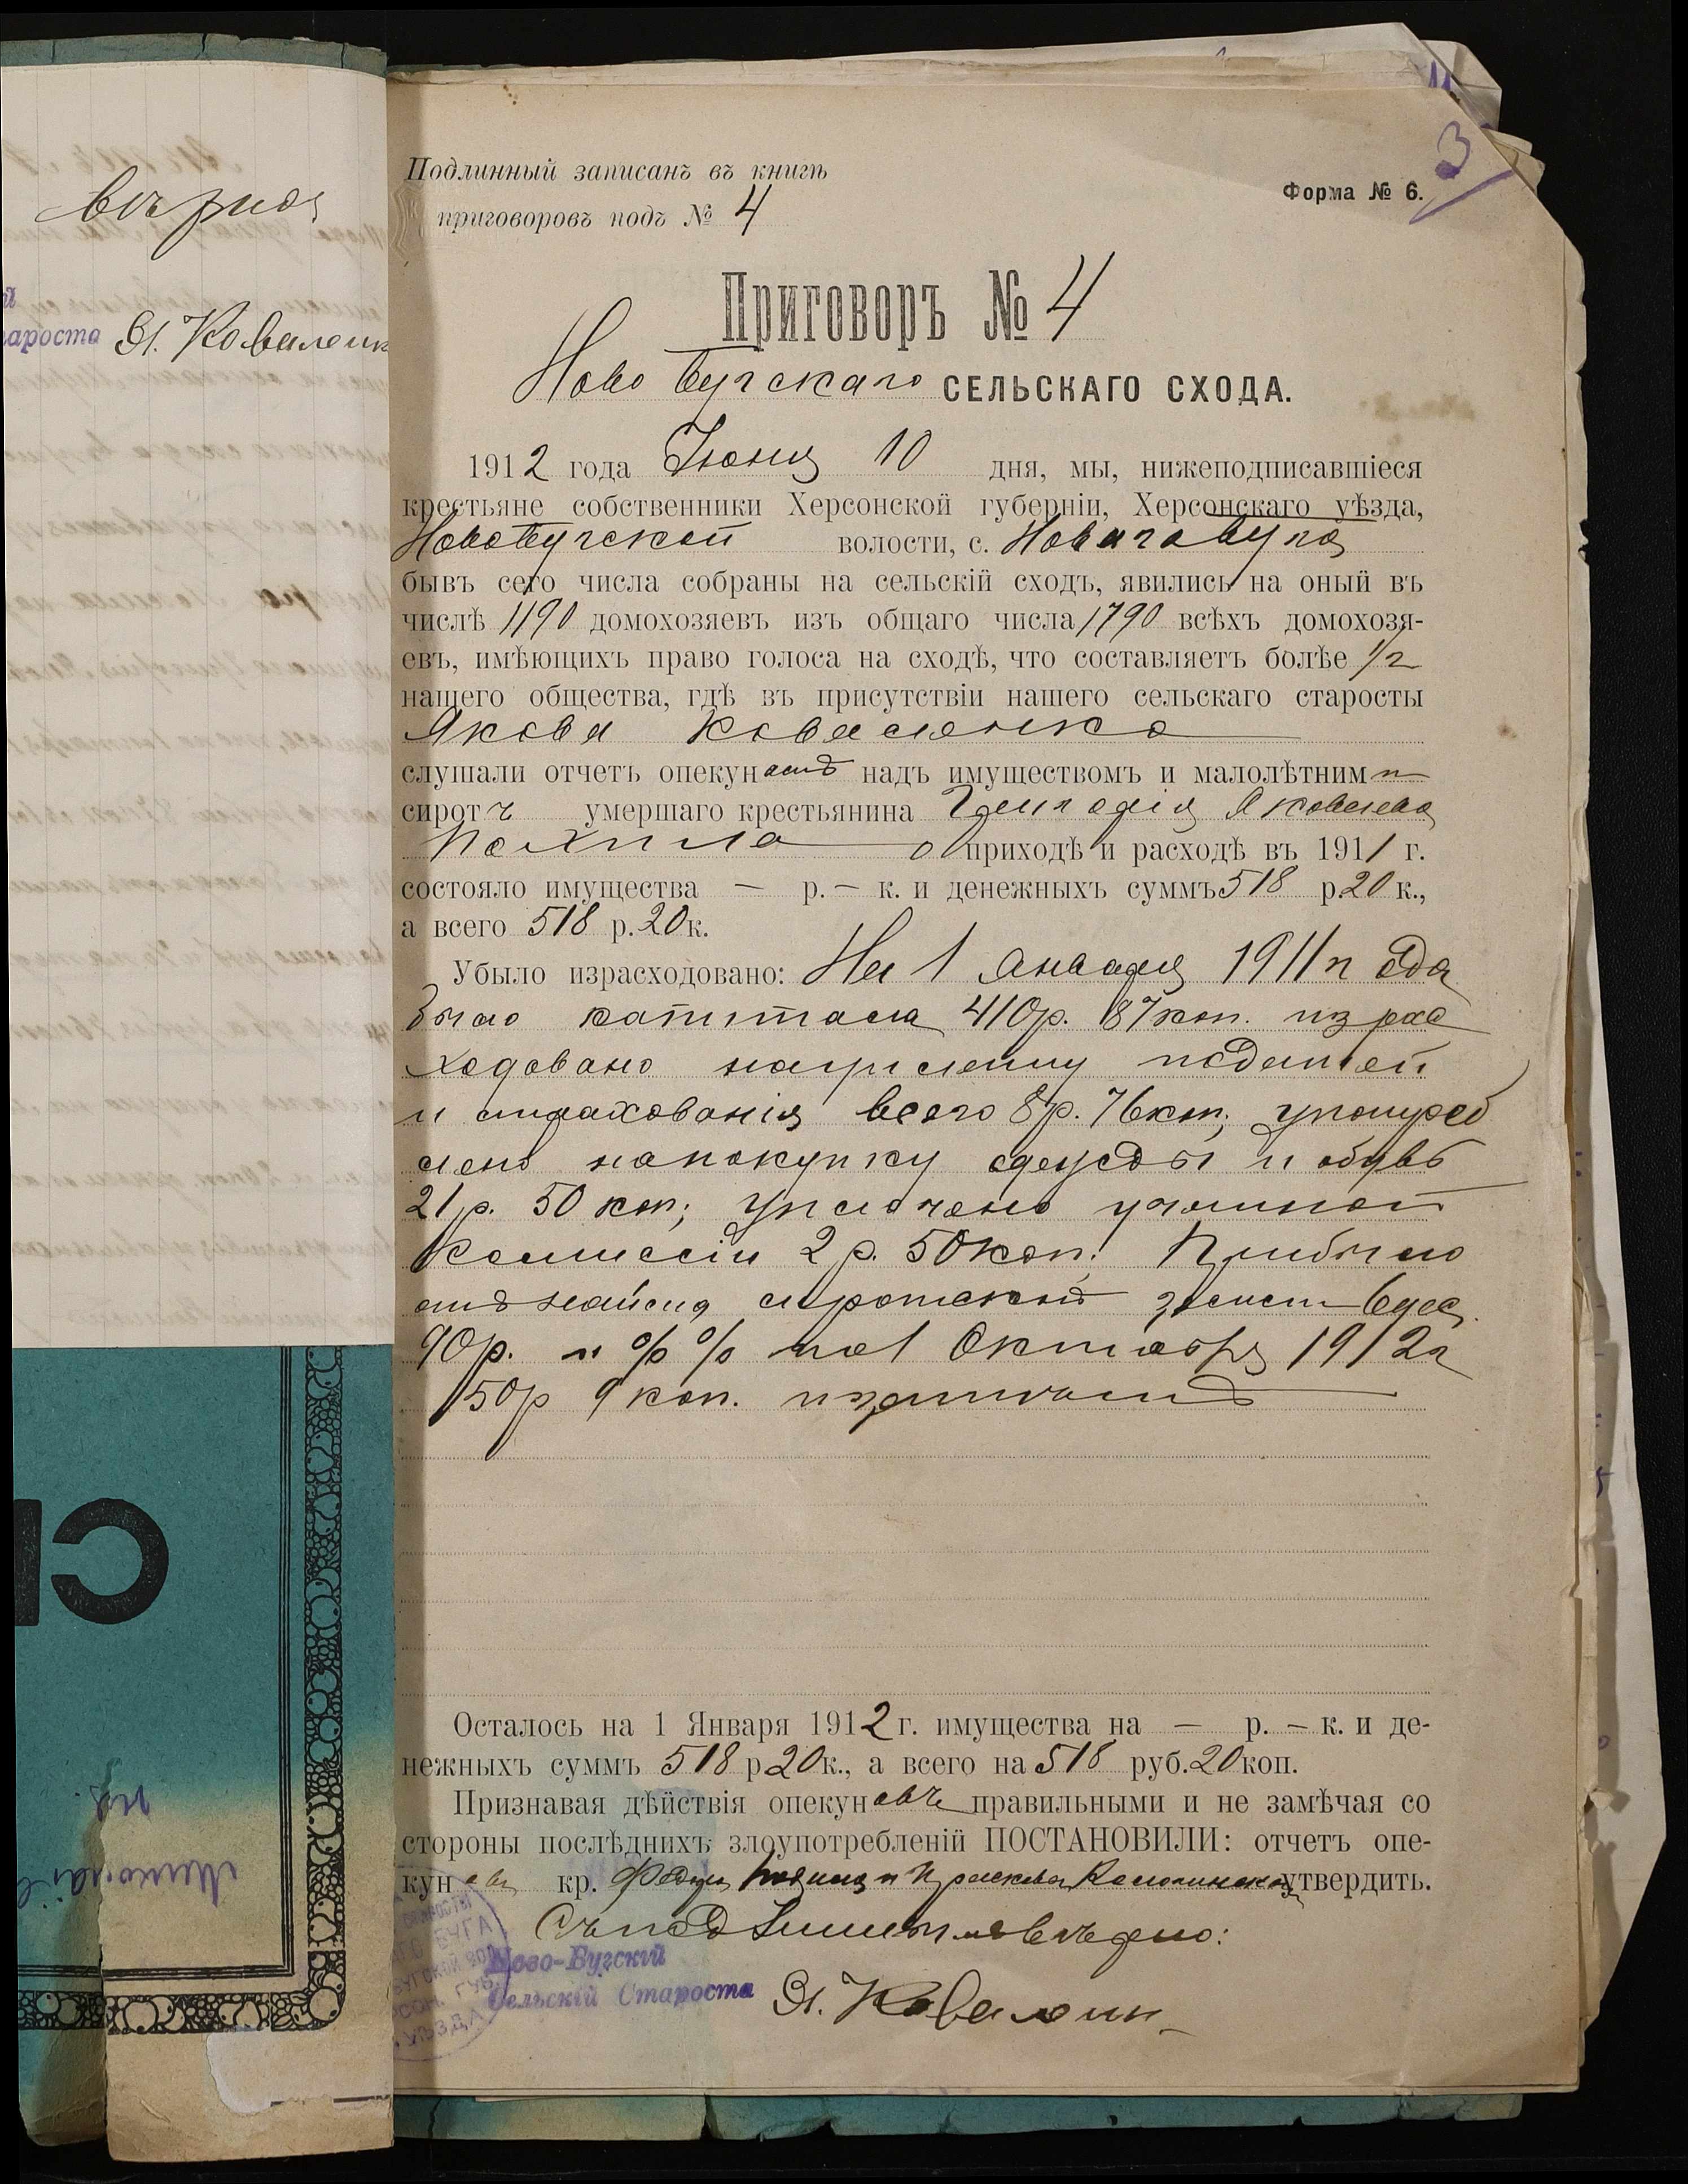 вѣрно
староста Я. Коваленк
Подлинный записанъ въ книгѣ
приговоровъ подъ № 4
Форма № 6.
3
Приговоръ № 4
Ново Бугскаго СЕЛЬСКАГО СХОДА.
1912 года Июня 10 дня, мы, нижеподписавшіеся
крестьяне собственники Херсонской губерніи, Херсонскаго уѣзда,
НовоБугской волости, с. Новаго Буга
бывъ сего числа собраны на сельскій сходъ, явились на оный въ
числѣ 1190 домохозяевъ изъ общаго числа 1790 всѣхъ домохозя-
евъ, имѣющихъ право голоса на сходѣ, что составляетъ болѣе 1/2
нашего общества, гдѣ въ присутствіи нашего сельскаго старосты
Якова Коваленко
слушали отчетъ опекуновъ надъ имуществомъ и малолѣтними
сиротъ умершаго крестьянина Яковлева
о приходѣ и расходѣ въ 1911 г.
состояло имущества — р. — к. и денежныхъ суммъ 518 р. 20 к.,
а всего 518 р. 20 к.
Убыло израсходовано: На 1 Января 1911 года
было капитала 410р. 87коп. израс
ходовано на уплату податей
и страхованія всего 8р. 76коп; употреб
лено на покупку одежды и обувь
21р. 50 коп; уплочено
Коммиссіи 2р. 50коп; Прибыло
сиротской земли 6 дес
90р. и %% по 1 Октября 1912г
150р 9 коп.
Осталось на 1 Января 1912 г. имущества на — р. — к. и де-
нежныхъ суммъ 518 р 20 к., а всего на 518 руб. 20 коп.
Признавая дѣйствія опекуновъ правильными и не замѣчая со
стороны послѣднихъ злоупотребленій ПОСТАНОВИЛИ: отчетъ опе-
куновъ кр. и утвердить.
Съ подлиннымъ вѣрно:
Ново-Бугскій
Сельскій Староста Я. Коваленк